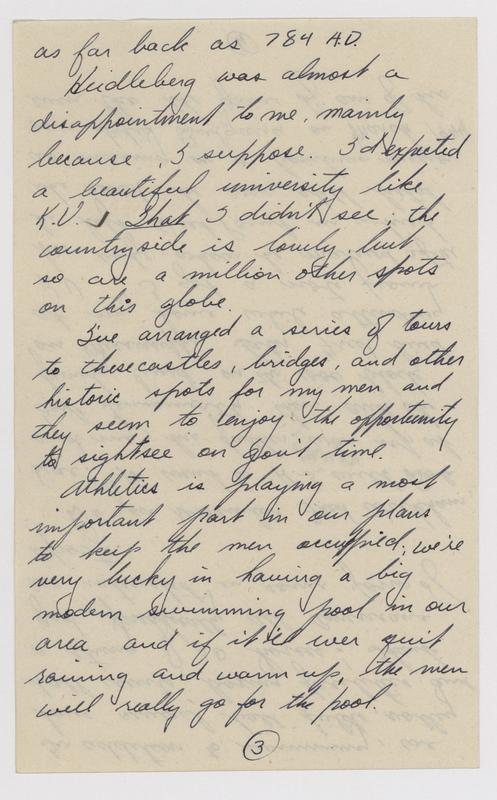 as far back as 784 A.D.
Heidleberg was almost a
disappointment to me, mainly
because, I suppose. I'd expected
a beautiful university like
K.U. That I didn't see; the
countryside is lovely but
so are a million other spots
on this globe.
I've arranged a series of tours
to these castles, bridges, and other
historic spots for my men and
they seem to enjoy the opportunity
to sightsee on gov't time.
Athletics is playing a most
important part in our plans
to keep the men occuppied; we're
very lucky in having a big
modern swimming pool in our
area and if it'll ever quit
raining and warm up, the men
will really go for the pool.
3